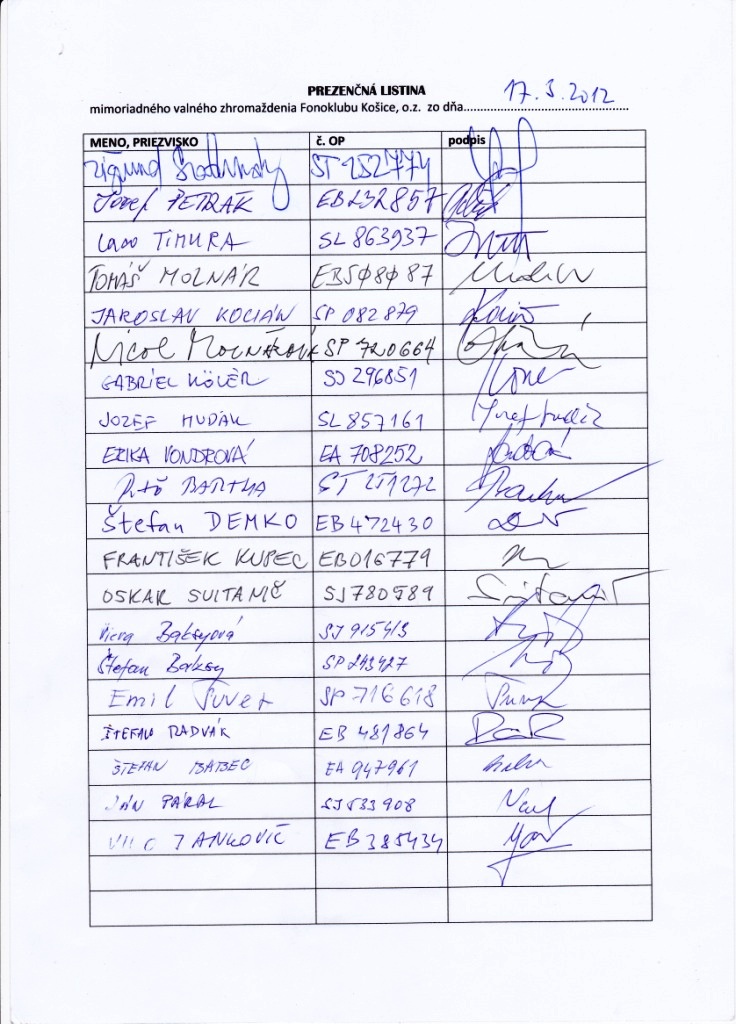 PREZENČNÁ LISTINA
mimoriadného valného zhromaždenia Fonoklubu Košice, o.z. zo dňa 17.3.2012
MENO, PRIEZVISKO č. OP podpis
Zigmund ST 252774
Jozef PETRÁK EB232857
Laco TIMURA SL 863937
TOMÁŠ MOLNÁR EB508087
JAROSLAV KOCIÁN SP 082879
Nicol Molnárová SP 720664
GABRIEL SJ 296851
JOZEF HUDÁK SL 857161
ERIKA VONDROVÁ EA 708252
BARTHA
Štefan DEMKO EB 472430
FRANTIŠEK KUPEC EB016779
OSKAR SVITANIČ SJ780589
Viera Baksyová SJ 915413
Štefan Baksy SP 243427
Emil SP 716618
ŠTEFAN RADVÁK EB 481864
ŠTEFAN BABEC EA 947961
JÁN PÁRAL SJ533908
JANKOVIČ EB 385434